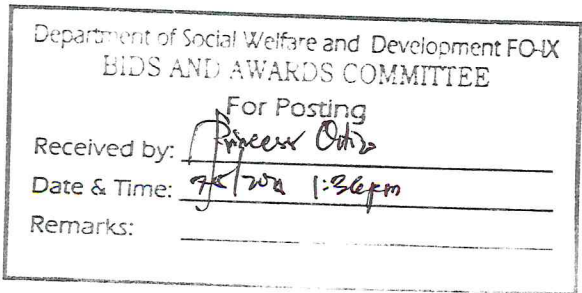 Department of Social Welfare and Development FO-IX
BIDS AND AWARDS COMMITTEE
For Posting
Received by: Princess
Date & Time: 1:36pm
Remarks: